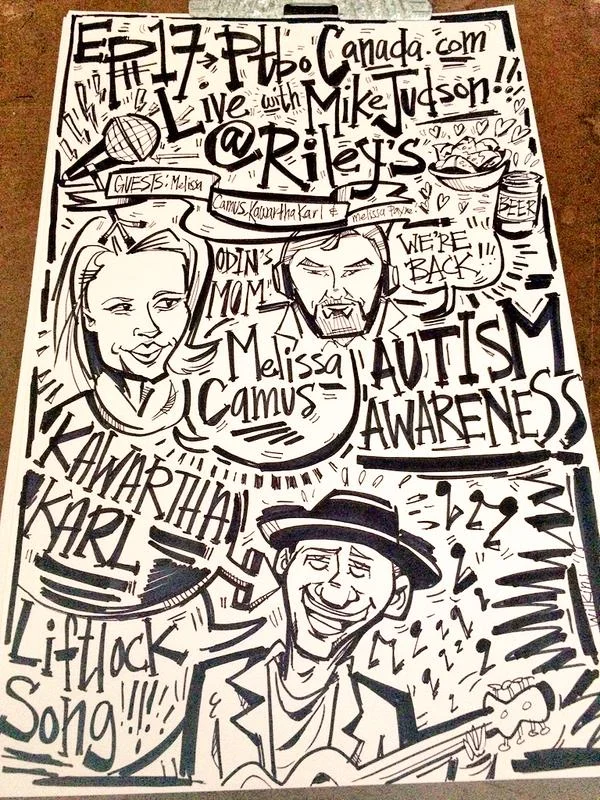 EP# 17 → Ptbo Canada.com
Live with Mike Judson!!
@ Riley's
GUESTS: Melissa
Camus, Kawartha Karl &
Melissa Payne
BEER
ODIN'S
MOM
WE'RE
BACK!!
Melissa
Camus
AUTISM
AWARENESS
KAWARTHA
KARL
Liftlock
Song!!!